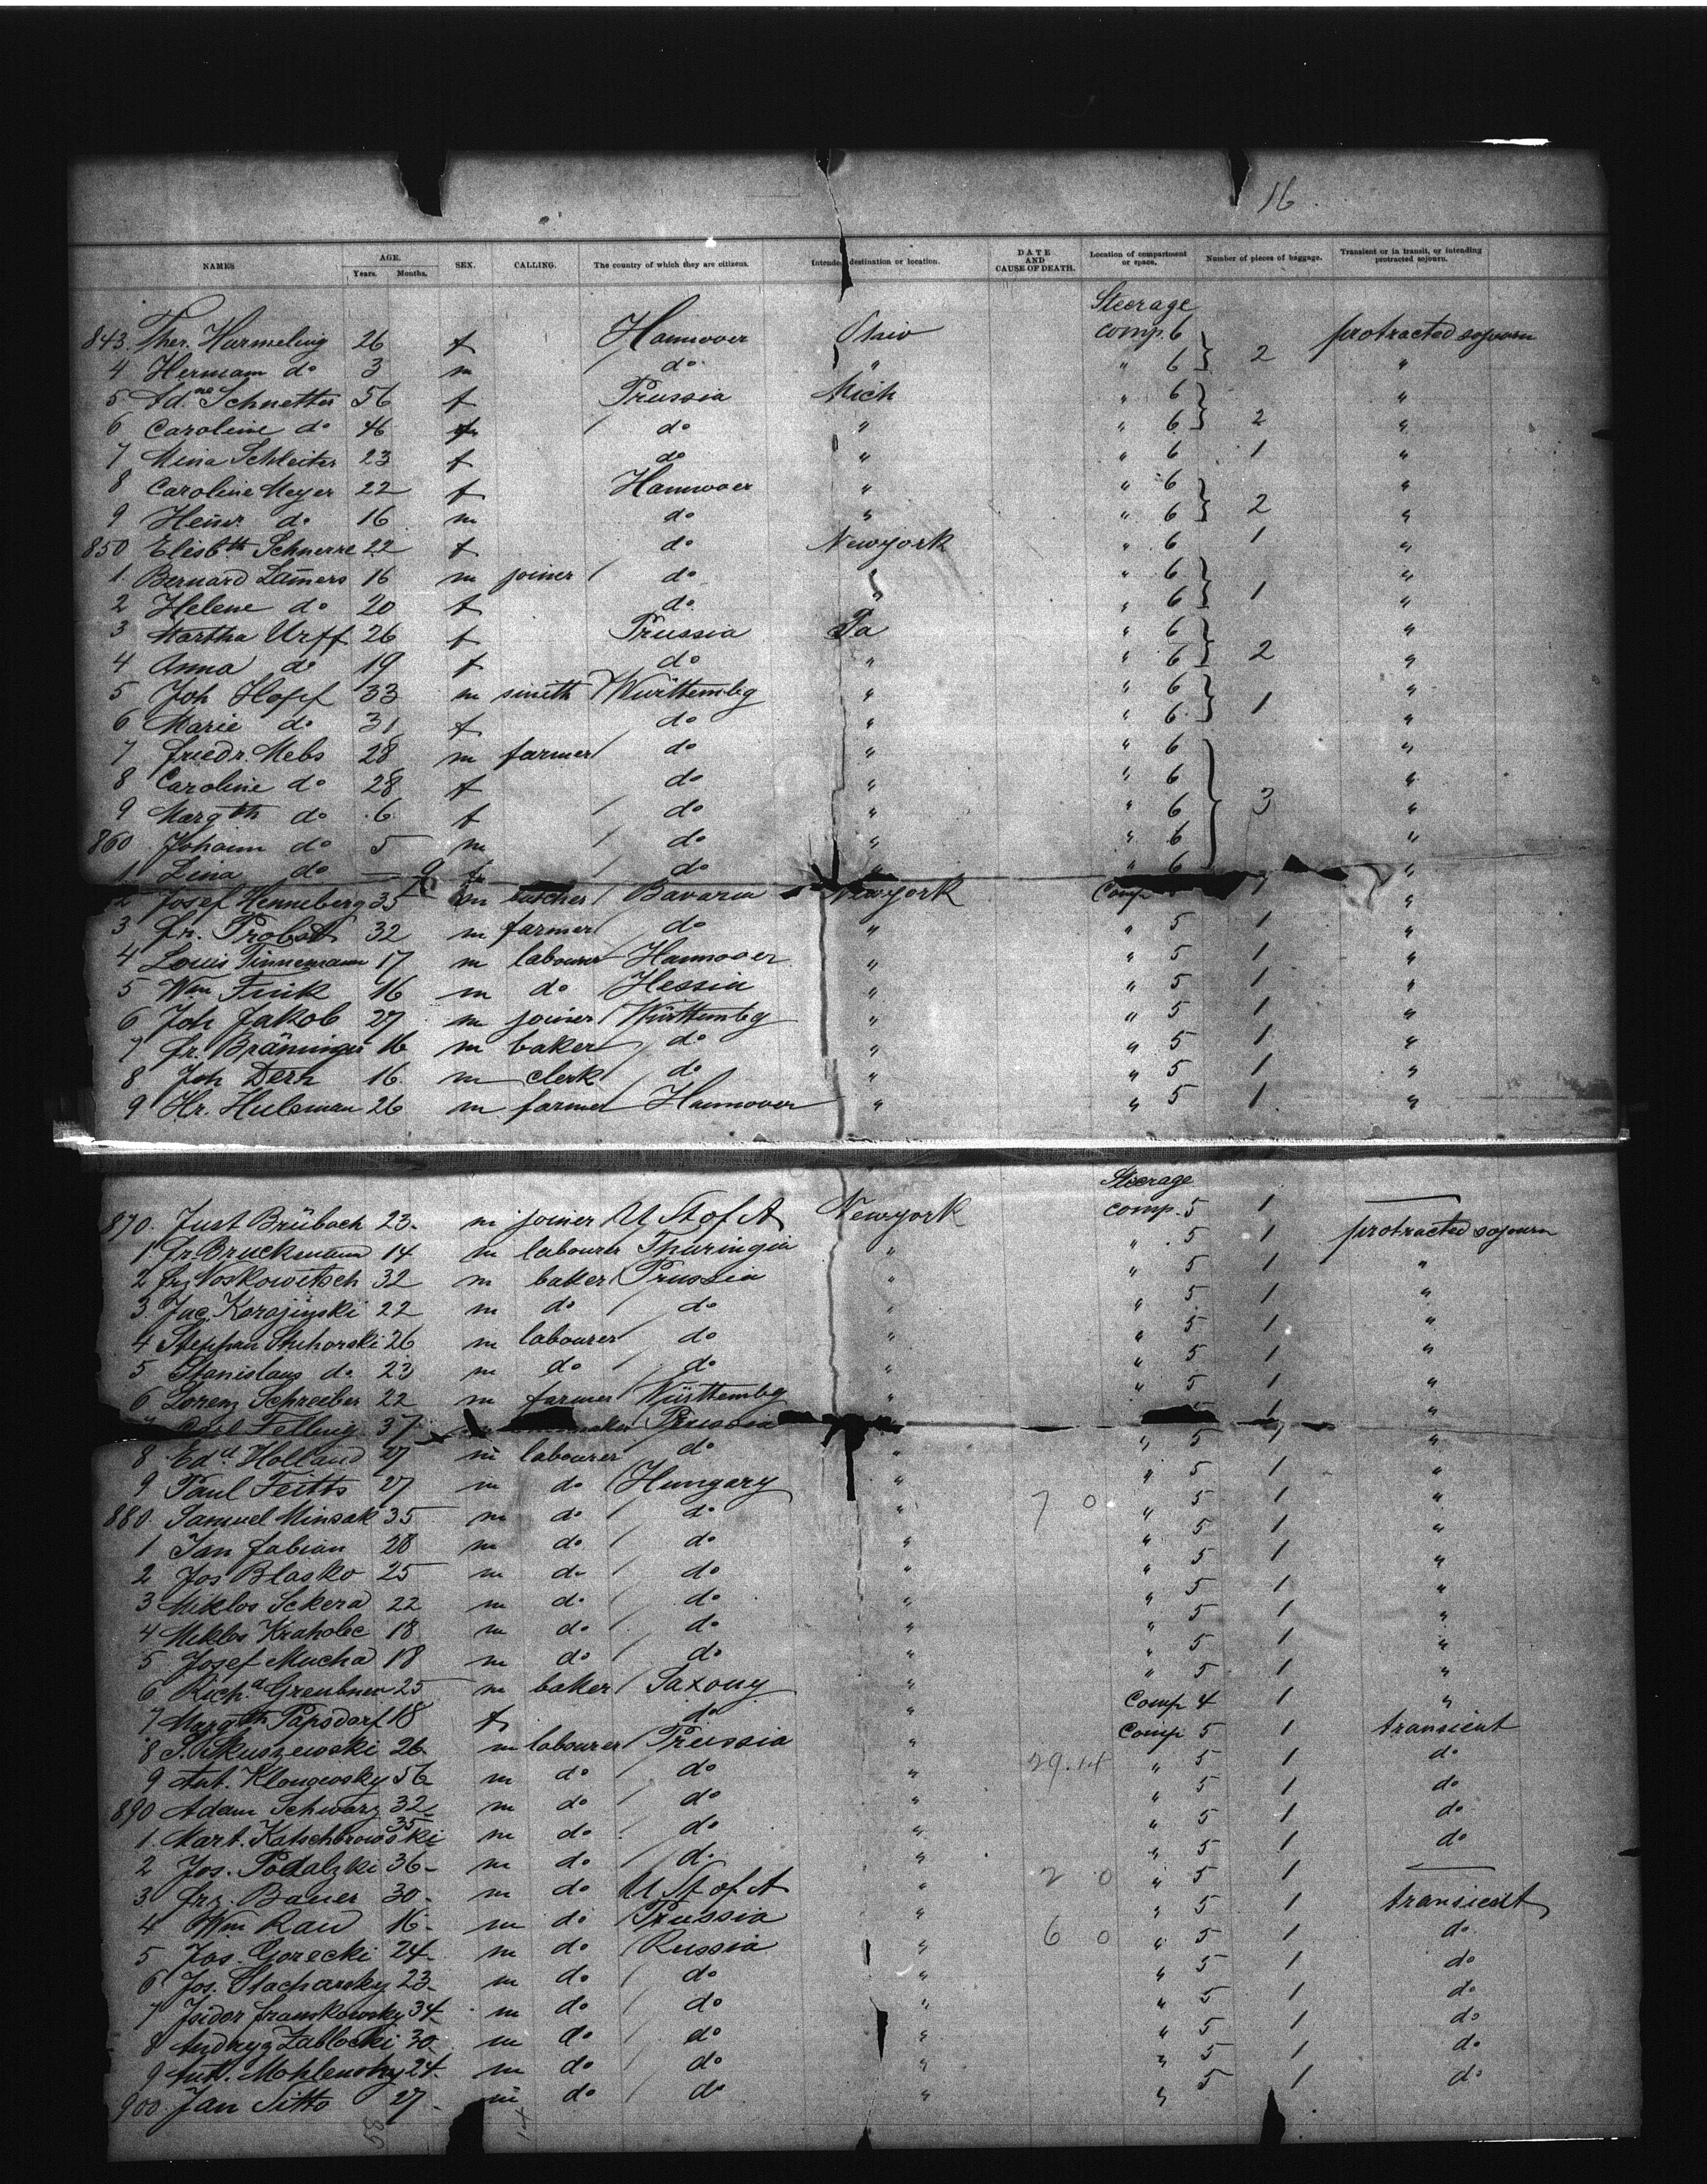 16
NAMES AGE. Years. Months. SEX. CALLING. The country of which they are citizens. Intended destination or location. DATE AND CAUSE OF DEATH. Location of compartment or space. Number of pieces of baggage. Transient or in transit, or intending protracted sojourn.
Steerage
843. Ther. Harmeling 26 f Hannover Ohio comp. 6 2 protracted sojourn
4 Hermann do 3 m / do " " 6 "
5 Ad.ne Schnetter 56 f Prussia Mich " 6 2 "
6 Caroline do 46 f / do " " 6 "
7 Mina Schleiter 23 f do " " 6 1 "
8 Caroline Meyer 22 f Hannover " " 6 2 "
9 Heinr do 16 m do " " 6 "
850 Elisbth Schnerre 22 f do Newyork " 6 1 "
1. Bernard Lamers 16 m joiner / do " " 6 1 "
2 Helene do 20 f do " " 6 "
3 Martha Urff 26 f Prussia Pa " 6 2 "
4 Anna do 19 f do " " 6 "
5 Joh Hopf 33 m smith / Württembg " " 6 1 "
6 Marie do 31 f do " " 6 "
7 Friedr. Mebs 28 m farmer / do " " 6 3 "
8 Caroline do 28 f do " " 6 "
9 Margth do 6 f / do " " 6 "
860 Johann do 5 m / do " " 6 "
1 Lina do — 9 f / do " " 6 "
2 Josef Henneberg 35 m butcher / Bavaria Newyork Comp "
3 Fr. Probst 32 m farmer / do " " 5 1 "
4 Louis Tinnemann 17 m labourer Hannover " " 5 1 "
5 Wm Fink 16 m do Hessia " " 5 1 "
6 Joh Jakob 27 m joiner / Württembg " " 5 1 "
7 Fr. Bräuninger 16 m baker / do " " 5 1 "
8 Joh Dern 16 m clerk / do " " 5 1 "
9 Hr. Hulsman 26 m farmer Hannover " " 5 1 "
Steerage
870. Just Brübach 23 m joiner U St of A Newyork comp. 5 1 —
1 Fr. Bruckmann 14 m labourer Thuringia " " 5 1 protracted sojourn
2 Frz Koskowitsch 32 m baker / Prussia " " 5 1 "
3 Jac. Korajinski 22 m do / do " " 5 1 "
4 Steppan Stuhorski 26 m labourer / do " " 5 1 "
5 Stanislaus do 23 m do / do " " 5 1 "
6 Lorenz Schreiber 22 m farmer / Württembg " " 5 1 "
7 Carl Felling 37 Prussia 1 "
8 Edd Holland 27 m labourer do " " 5 1 "
9 Paul Feitts 27 m do / Hungary " " 5 1 "
880. Samuel Minsak 35 m do / do " 7 0 " 5 1 "
1 Jan Fabian 28 m do / do " " 5 1 "
2 Jos Blasko 25 m do / do " " 5 1 "
3 Miklos Sckera 22 m do / do " " 5 1 "
4 Miklos Kraholec 18 m do / do " " 5 1 "
5 Josef Mucha 18 m do / do " " 5 1 "
6 Richd Greubner 25 m baker / Saxony " " 5 1 "
7 Margth Papsdorf 18 f do " Comp 4 1 "
8 S. Skuszewski 26 m labourer / Prussia " Comp 5 1 transient
9 Ant. Klongwosky 56 m do / do " 29.14 " 5 1 do
890 Adam Schwarz 32 m do / do " " 5 1 do
1. Mart. Katschbrowski 35 m do / do " " 5 1 do
2 Jos. Podalzki 36 m do / do " " 5 1 do
3 Frz. Bauer 30 m do U St of A " 2 0 " 5 1 —
4 Wm Rau 16 m do / Prussia " " 5 1 transient
5 Jos. Gorecki 24 m do / Russia " 6 0 " 5 1 do
6 Jos. Stacharsky 23 m do / do " " 5 1 do
7 Isidor Frankowsky 34 m do / do " " 5 1 do
8 Andryz Zablocki 30 m do / do " " 5 1 do
9 Ant. Mohlensky 24 m do / do " " 5 1 do
900 Jan Sitto 27 m do / do " " 5 1 do
58